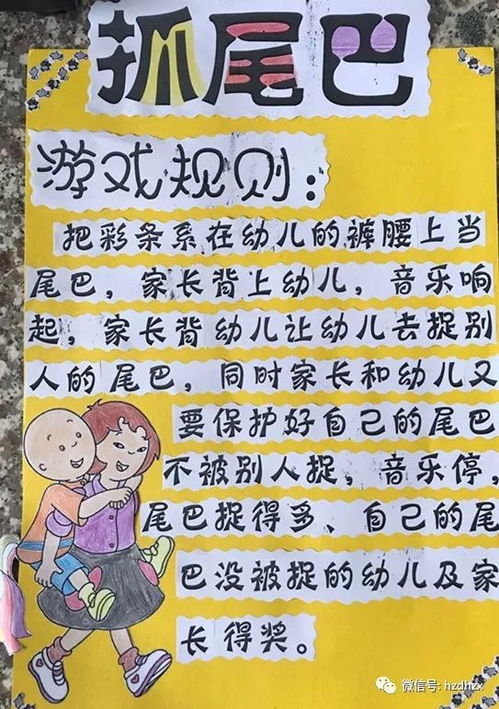 抓尾巴
游戏规则：
把彩条系在幼儿的裤腰上当
尾巴，家长背上幼儿，音乐响
起，家长背幼儿让幼儿去捉别
人的尾巴，同时家长和幼儿又
要保护好自己的尾巴
不被别人捉，音乐停，
尾巴捉得多、自己的尾
巴没被捉的幼儿及家
长得奖。
微信号: hzdhzx